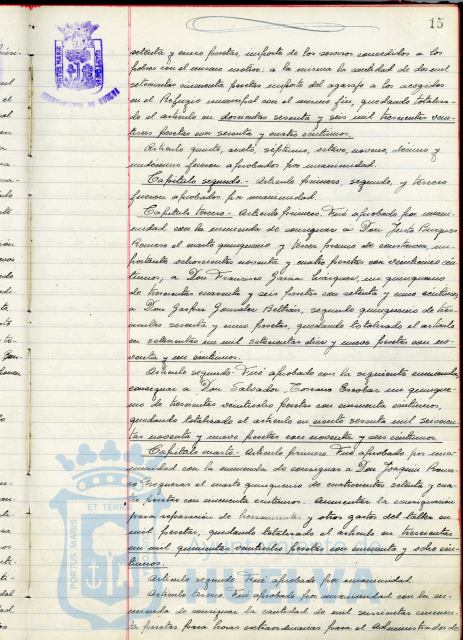 15
setenta y cinco pesetas, importe de los socorros concedidos a los
pobres con el mismo motivo: a la misma la cantidad de dos mil
setecientas cincuenta pesetas importe del agasajo a los acogidos
en el Refugio municipal con el mismo fin, quedando totaliza-
do el artículo en doscientas sesenta y seis mil trescientas vein-
tiseis pesetas con sesenta y cuatro céntimos.
Artículo quinto, sexto, séptimo, octavo, noveno, décimo y
undécimo fueron aprobados por unanimidad.
Capítulo segundo.- Artículo primero, segundo, y tercero
fueron aprobados por unanimidad.
Capítulo tercero.- Artículo primero. Fué aprobado por unani-
midad con la enmienda de consignar a Don Justo Burgues
Romero el cuarto quinquenio y tercer premio de constancia, im-
portante ochocientas noventa y cuatro pesetas con cén-
timos, a Don Francisco García un quinquenio
de trescientas cuarenta y seis pesetas con setenta y cinco céntimos,
a Don Gaspar González Beltrán, segundo quinquenio de tres-
cientas sesenta y cinco pesetas, quedando totalizado el artículo
en setecientas un mil setecientas diez y nueve pesetas con no-
venta y un céntimos.
Artículo segundo. Fué aprobado con la siguiente enmienda,
consignar a Don Salvador Moreno Escobar un quinque-
nio de trescientas veintiocho pesetas con cincuenta céntimos,
quedando totalizado el artículo en ciento sesenta mil seiscien-
tas noventa y nueve pesetas con noventa y seis céntimos
Capítulo cuarto.- Artículo primero. Fué aprobado por una-
nimidad con la enmienda de consignar a Don Joaquín Rome-
ro Nogueras el cuarto quinquenio de cuatrocientas setenta y cua-
tro pesetas con cincuenta céntimos. Aumentar la consignación
para reparación de herramientas y otros gastos del taller en
mil pesetas, quedando totalizado el artículo en trescientas
un mil quinientas veintiocho pesetas con cincuenta y ocho cén-
timos.
Artículo segundo. Fué aprobado por unanimidad.
Artículo tercero. Fué aprobado por unanimidad con la en-
mienda de consignar la cantidad de mil seiscientas cincuen-
ta pesetas para horas extraordinarias para el Administrador de
AYUNTAMIENTO DE HUELVA
PORTUS MARIS ET TERRAE
Ayuntamiento
HUELVA